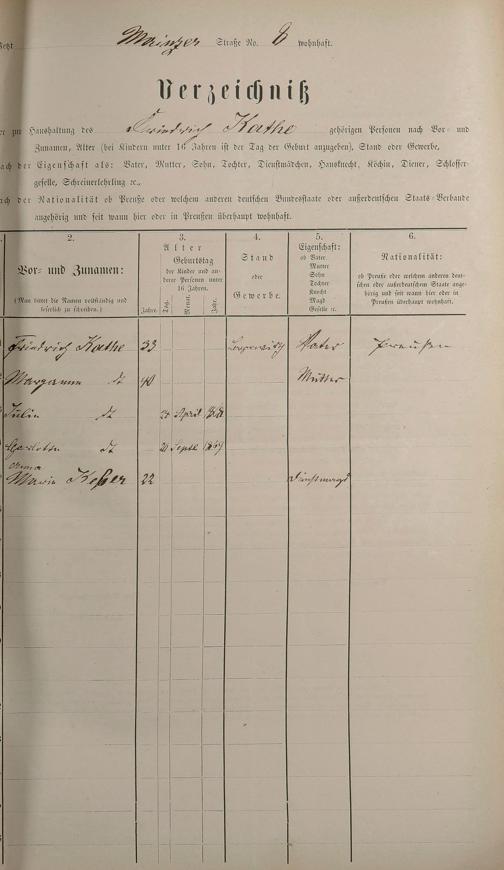 Jetzt Mainzer Straße No. 8 wohnhaft.
Verzeichniß
zur Haushaltung des Friedrich Kathe gehörigen Personen nach Vor- und
Zunamen, Alter (bei Kindern unter 16 Jahren ist der Tag der Geburt anzugeben), Stand oder Gewerbe,
nach der Eigenschaft als: Vater, Mutter, Sohn, Tochter, Dienstmädchen, Hausknecht, Köchin, Diener, Schlosser-
geselle, Schreinerlehrling ec.,
nach der Nationalität ob Preuße oder welchem anderen deutschen Bundesstaate oder außerdeutschen Staats-Verbande
angehörig und seit wann hier oder in Preußen überhaupt wohnhaft.
2. 3. 4. 5. 6.
Vor- und Zunamen:
(Man bittet die Namen vollständig und
leserlich zu schreiben.)
Alter
Jahre.
Geburtstag
der Kinder und an-
derer Personen unter
16 Jahren.
Tag. Monat. Jahr.
Stand
oder
Gewerbe.
Eigenschaft:
ob Vater
Mutter
Sohn
Tochter
Knecht
Magd
Geselle ec.
Nationalität:
ob Preuße oder welchem anderen deut-
schen oder außerdeutschen Staate ange-
hörig und seit wann hier oder in
Preußen überhaupt wohnhaft.
Friedrich Kathe 33 Vater Preußen
dt 40 Mutter
Julie dt April
dt Septe
Anna
Maria Keßer 22 Dienstmagd